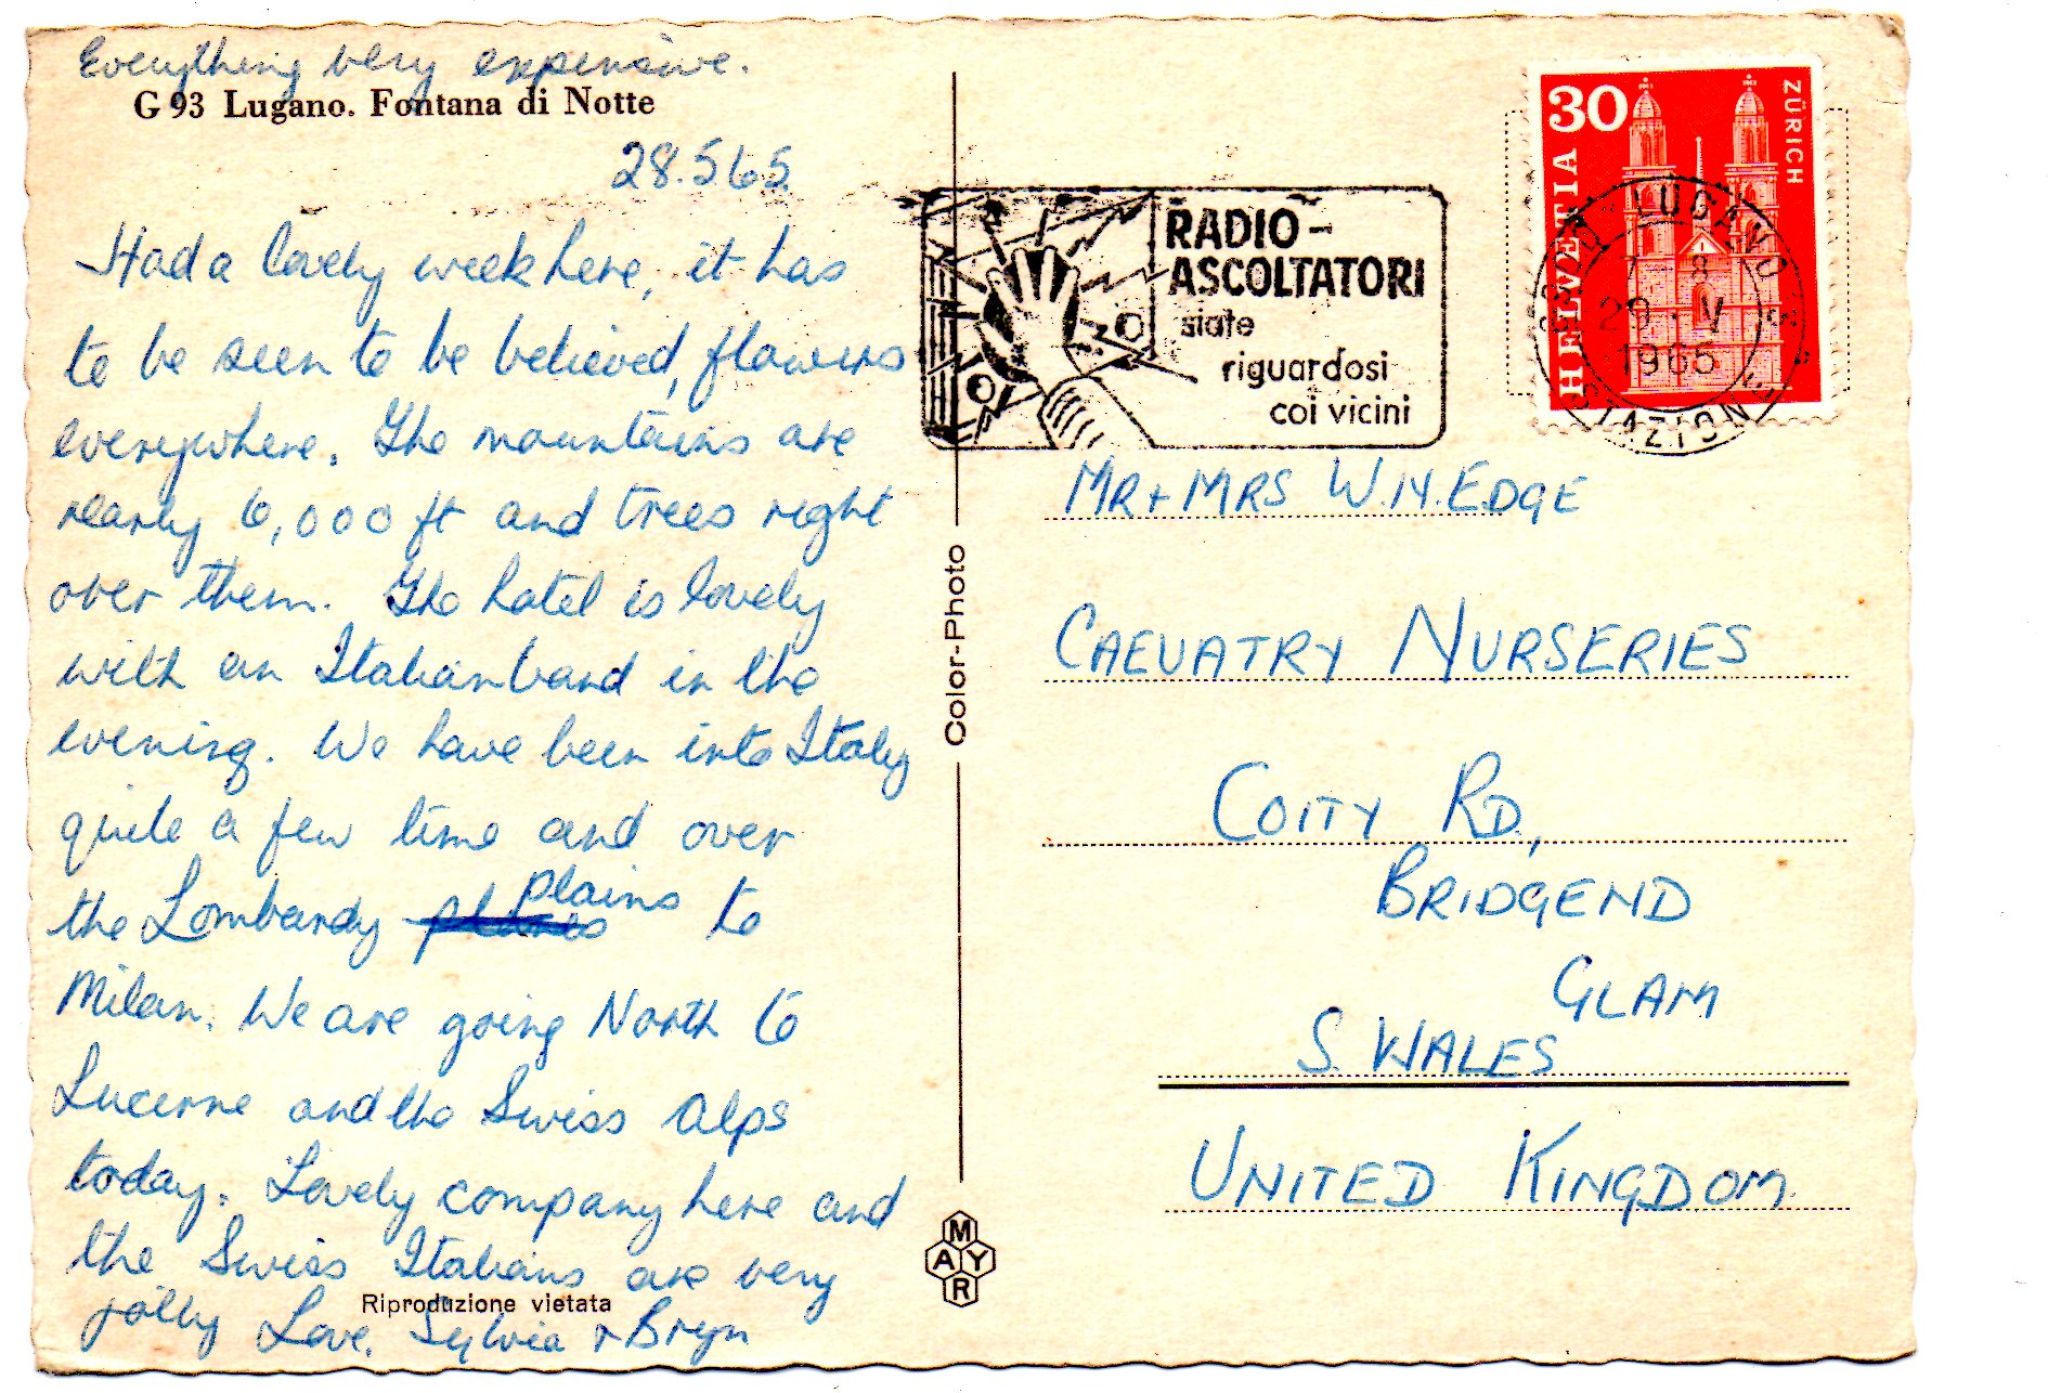 Everything very expensive.
G 93 Lugano. Fontana di Notte
28.5.65.
Had a lovely week here, it has
to be seen to be believed, flowers
everywhere. The mountains are
nearly 6,000 ft and trees right
over them. The hotel is lovely
with an Italian band in the
evening. We have been into Italy
quite a few time and over
the Lombardy planes plains to
Milan. We are going North to
Lucerne and the Swiss Alps
today. Lovely company here and
the Swiss Italians are very
jolly Love, Sylvia + Bryn
Riproduzione vietata
Color-Photo
MAYR
RADIO-
ASCOLTATORI
siate
riguardosi
coi vicini
30
HELVETIA
ZÜRICH
LUGANO
7-8
29.V
1965
STAZIONE
MR + MRS W.H. EDGE
CAEUATRY NURSERIES
COITY RD,
BRIDGEND
GLAM
S. WALES
UNITED KINGDOM.